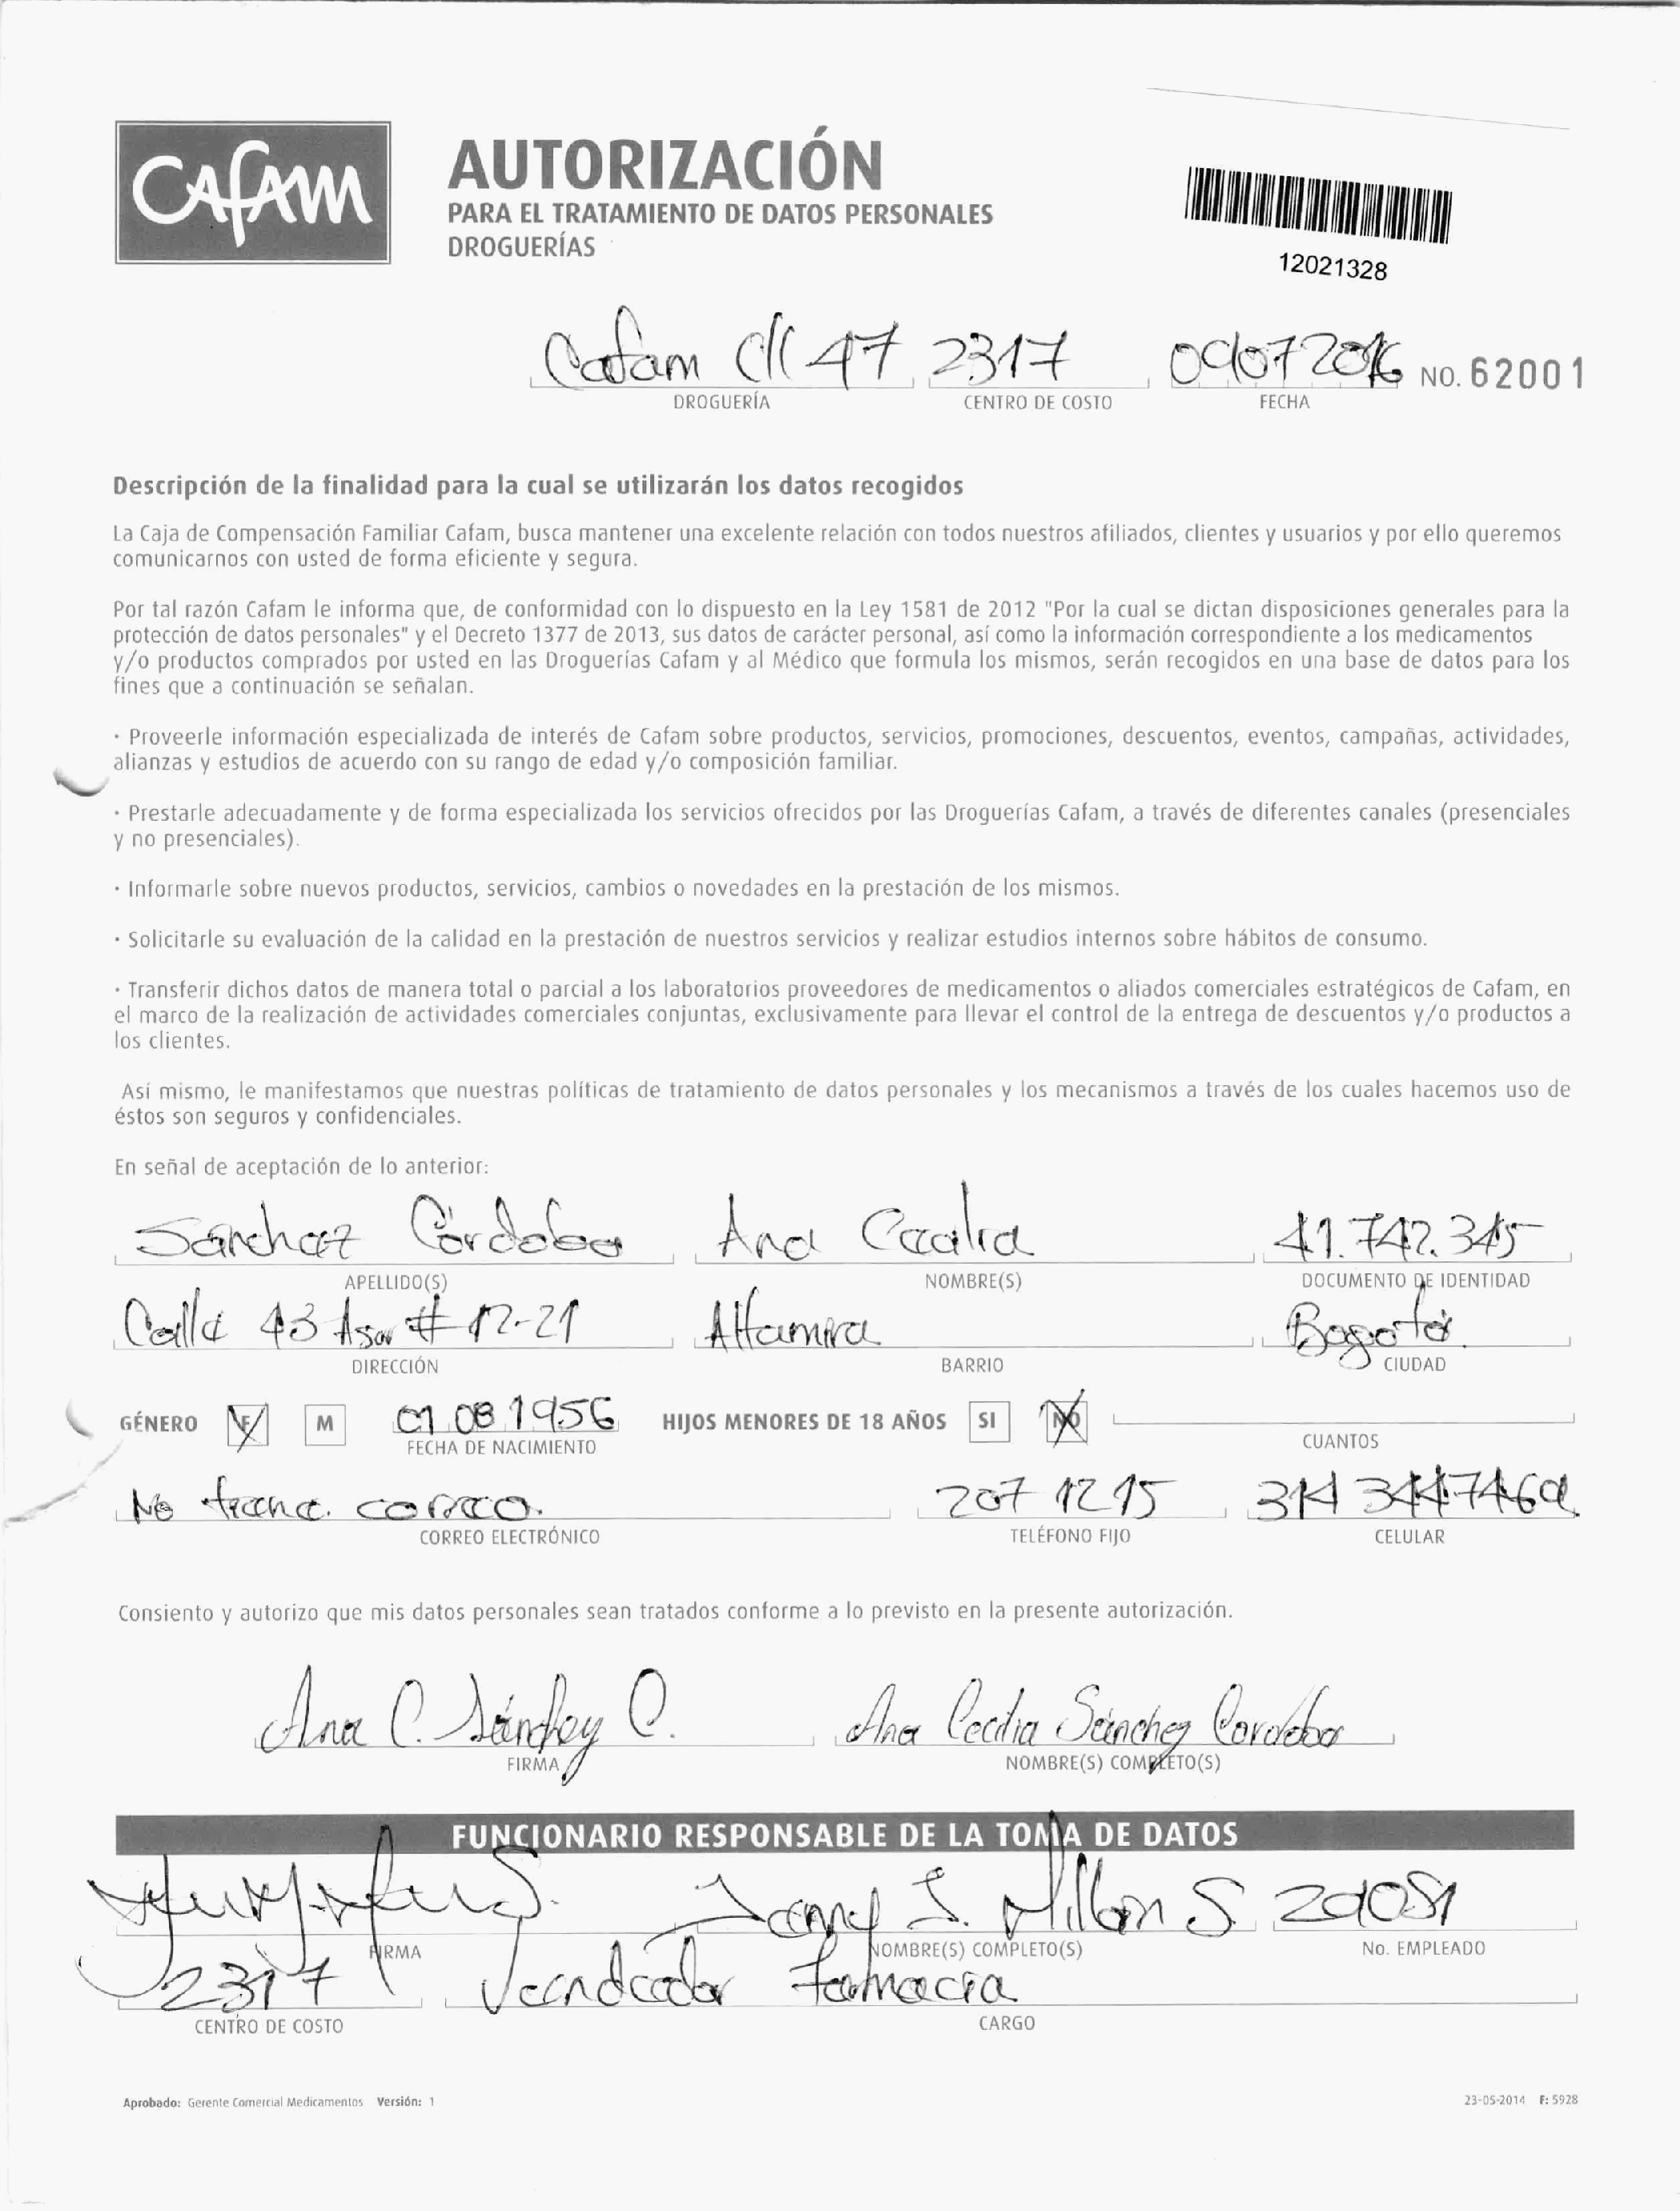 CAfAM
AUTORIZACIÓN
PARA EL TRATAMIENTO DE DATOS PERSONALES
DROGUERÍAS
12021328
Cafam Cll 47 2317 2016 NO. 62001
DROGUERÍA CENTRO DE COSTO FECHA
Descripción de la finalidad para la cual se utilizarán los datos recogidos
La Caja de Compensación Familiar Cafam, busca mantener una excelente relación con todos nuestros afiliados, clientes y usuarios y por ello queremos
comunicarnos con usted de forma eficiente y segura.
Por tal razón Cafam le informa que, de conformidad con lo dispuesto en la Ley 1581 de 2012 "Por la cual se dictan disposiciones generales para la
protección de datos personales" y el Decreto 1377 de 2013, sus datos de carácter personal, así como la información correspondiente a los medicamentos
y/o productos comprados por usted en las Droguerías Cafam y al Médico que formula los mismos, serán recogidos en una base de datos para los
fines que a continuación se señalan.
· Proveerle información especializada de interés de Cafam sobre productos, servicios, promociones, descuentos, eventos, campañas, actividades,
alianzas y estudios de acuerdo con su rango de edad y/o composición familiar.
· Prestarle adecuadamente y de forma especializada los servicios ofrecidos por las Droguerías Cafam, a través de diferentes canales (presenciales
y no presenciales).
· Informarle sobre nuevos productos, servicios, cambios o novedades en la prestación de los mismos.
· Solicitarle su evaluación de la calidad en la prestación de nuestros servicios y realizar estudios internos sobre hábitos de consumo.
· Transferir dichos datos de manera total o parcial a los laboratorios proveedores de medicamentos o aliados comerciales estratégicos de Cafam, en
el marco de la realización de actividades comerciales conjuntas, exclusivamente para llevar el control de la entrega de descuentos y/o productos a
los clientes.
Así mismo, le manifestamos que nuestras políticas de tratamiento de datos personales y los mecanismos a través de los cuales hacemos uso de
éstos son seguros y confidenciales.
En señal de aceptación de lo anterior:
Sanchez Cordoba Ana Cecilia 41.742.345
APELLIDO(S) NOMBRE(S) DOCUMENTO DE IDENTIDAD
Calle 43 # 12-21 Altamira Bogotá
DIRECCIÓN BARRIO CIUDAD
GÉNERO F M 01 08 1956 HIJOS MENORES DE 18 AÑOS SI NO
FECHA DE NACIMIENTO CUANTOS
No tiene correo. 207 12 15
CORREO ELECTRÓNICO TELÉFONO FIJO CELULAR
Consiento y autorizo que mis datos personales sean tratados conforme a lo previsto en la presente autorización.
Ana C. Sánchez C. Ana Cecilia Sánchez Cordoba
FIRMA NOMBRE(S) COMPLETO(S)
FUNCIONARIO RESPONSABLE DE LA TOMA DE DATOS
S. Millan S.
FIRMA NOMBRE(S) COMPLETO(S) No. EMPLEADO
2317 Vendedor Farmacia
CENTRO DE COSTO CARGO
Aprobado: Gerente Comercial Medicamentos Versión: 1 23-05-2014 F: 5928